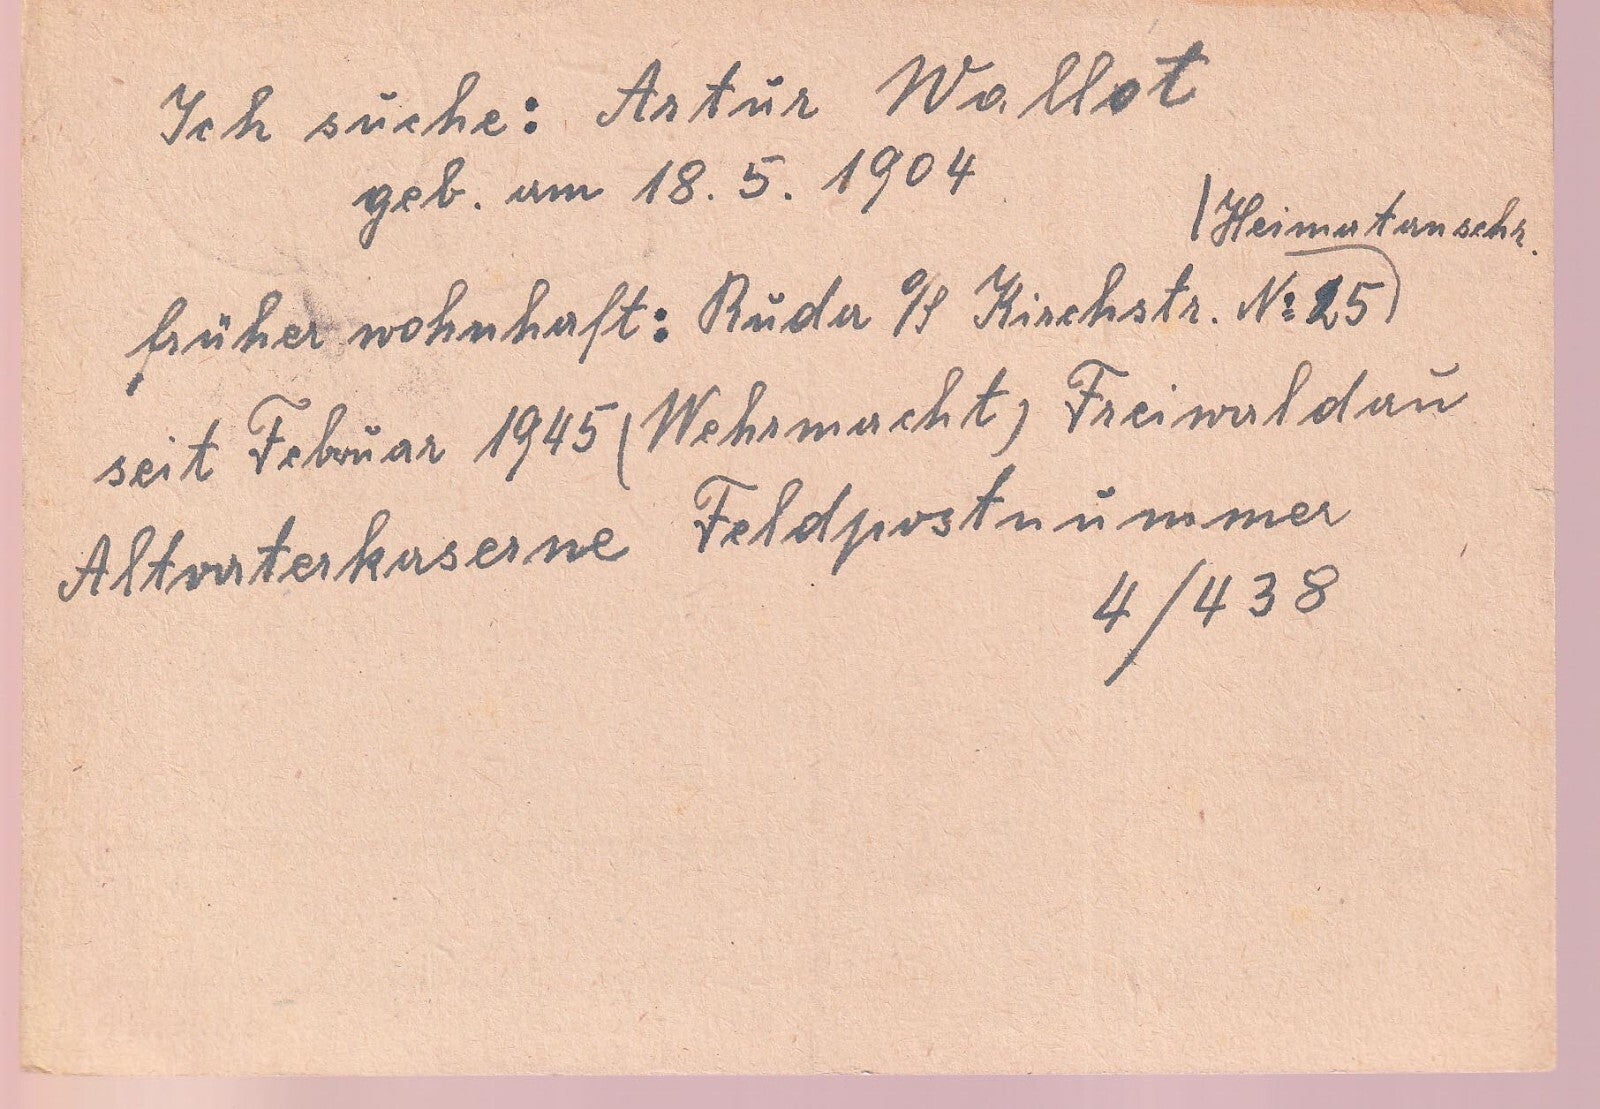 Ich suche: Artur Wallot
geb. am 18. 5. 1904
(Heimatanschr.
früher wohnhaft: Ruda O/S Kirchstr. No 25)
seit Februar 1945 (Wehrmacht) Freiwaldau
Altvaterkaserne Feldpostnummer
4/438